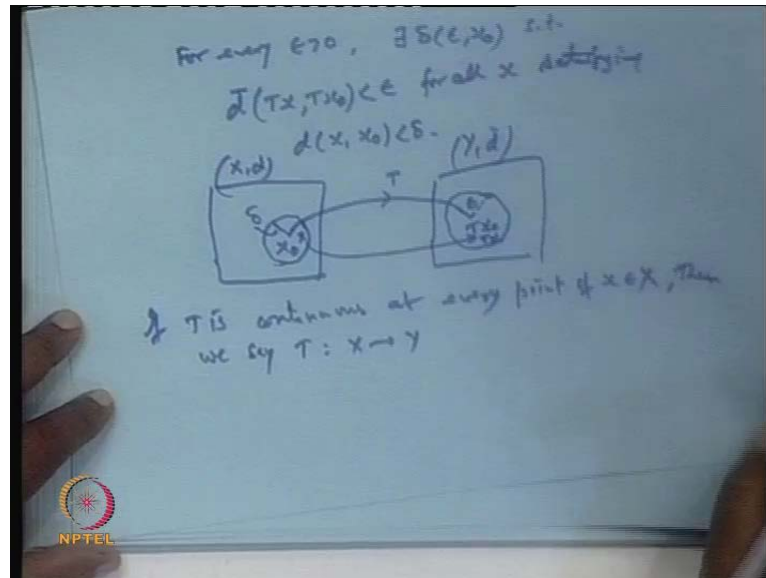 For every ϵ>0, ∃ δ(ϵ,x₀) s.t.
d̄(Tx,Tx₀)<ϵ for all x satisfying
d(x,x₀)<δ.
(X,d) (Y,d̄)
T
δ ϵ
x₀ x Tx₀
Tx
If T is continuous at every point of x ∈ X, Then
we say T : X → Y
NPTEL